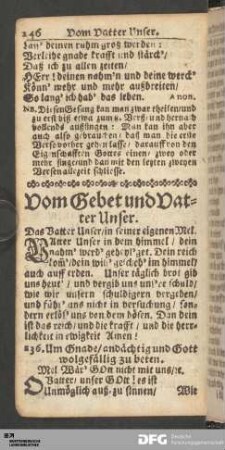 246 Vom Vatter Unser.
Laß deinen ruhm groß werden:
Verleihe gnade krafft und stärck/
Daß ich zu allen zeiten/
HErr! deinen nahm'n und deine werck'
Könn' mehr und mehr außbreiten/
So lang' ich hab' das leben. Anon.
NB. Diesen Gesang kan man zwar theilen und
zu erst biß etwa zum Verß/und hernach
vollends außsingen: Man kan ihn aber
auch also gebrauchen/ daß man die erste
Verse vorher gehen lasse/ darauff von den
Eigenschafften Gottes einen/ zwey oder
mehr singe und dan mit den letzten zweyen
Versen allezeit schliesse.
Vom Gebet und Vat-
ter Unser.
Das Vatter Unser/in seiner eigenen Mel.
VAtter Unser in dem himmel/ dein
nahm' werd' geheiliget. Dein reich
kom'/dein will' gescheh' im himmel/
auch auff erden. Unser täglich brot gib
uns heut'/ und vergib uns unsere schuld/
wie wir unsern schuldigern vergeben/
und führ' uns nicht in versuchung/ son-
dern erlös' uns von dem bösen. Dan dein
ist das reich/ und die krafft/ und die herr-
lichkeit in ewigkeit Amen!
236. Um Gnade/ andächtig und Gott
wolgefällig zu beten.
Mel. Wär' GOtt nicht mit uns/ꝛc.
O Vatter/ unser GOtt! es ist
Unmöglich auß zu sinnen/
Wie
DFG Deutsche
Forschungsgemeinschaft